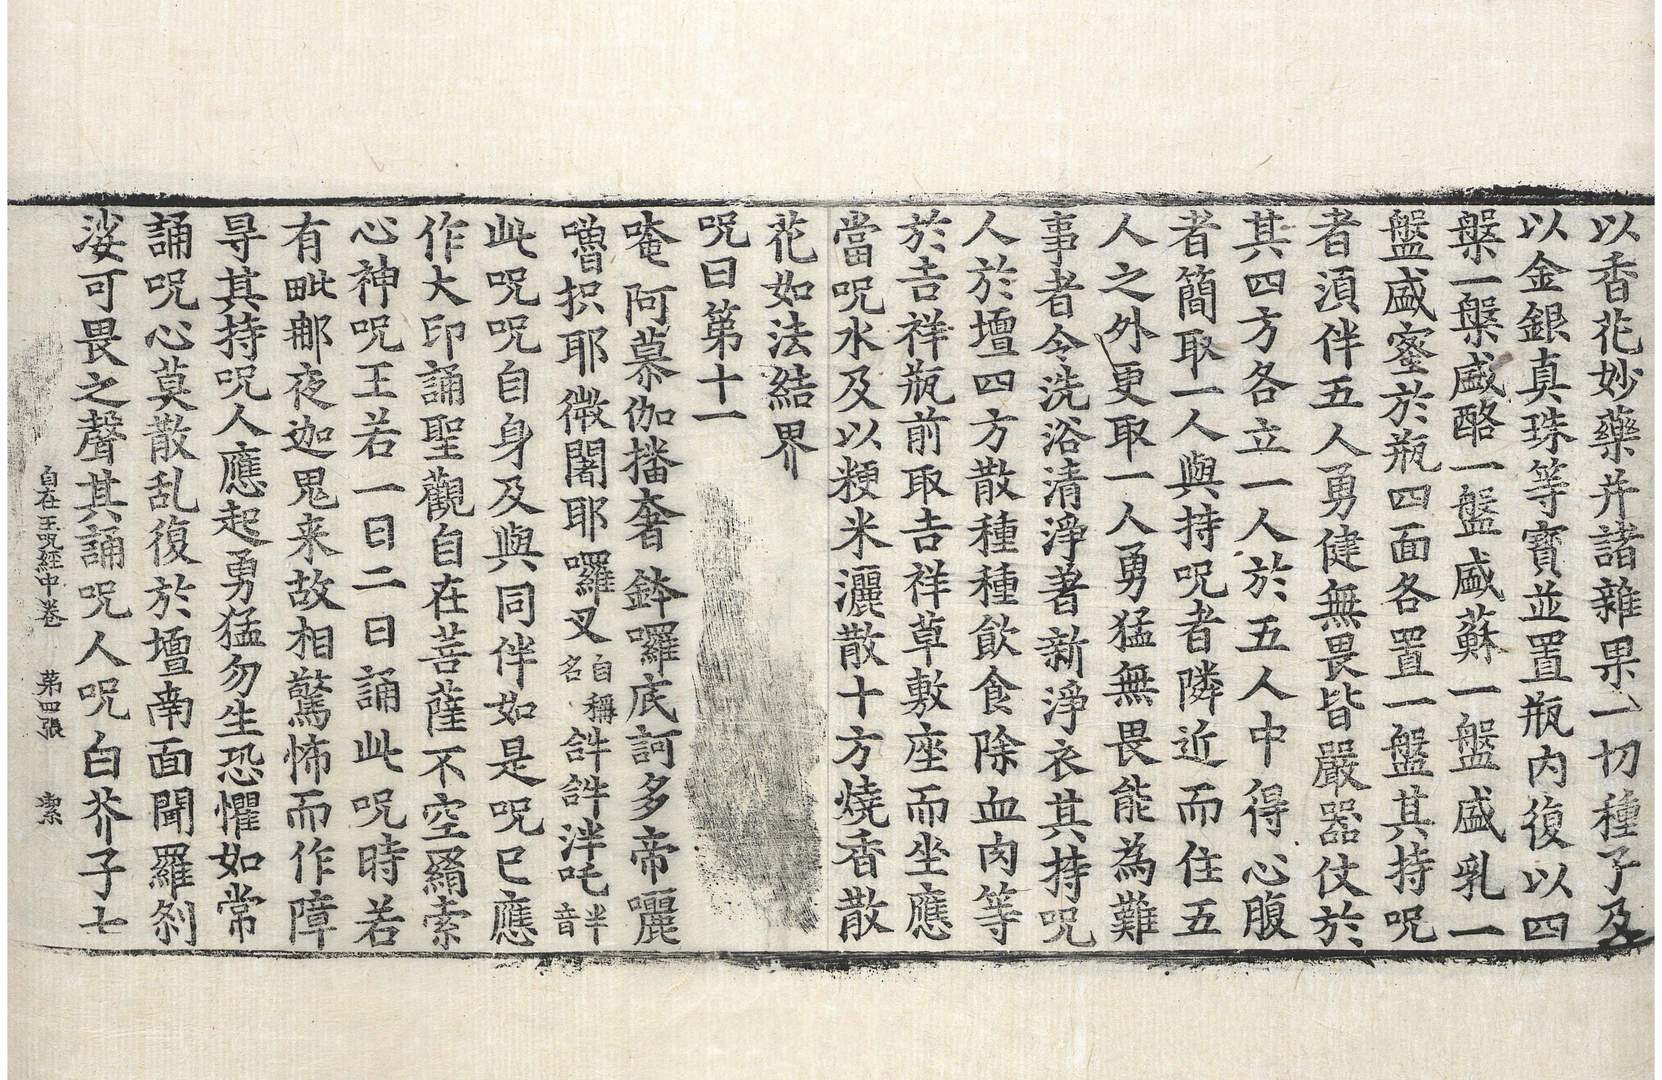 以香花妙藥并諸雜果一切種子及
以金銀真珠等寶並置瓶内復以四
槃一槃盛酪一盤盛蘇一盤盛乳一
盤盛蜜於瓶四面各置一盤其持呪
者湏伴五人勇健無畏皆嚴器仗於
其四方各立一人於五人中得心腹
者簡取一人與持呪者隣近而住五
人之外更取一人勇猛無畏能為難
事者令洗浴清淨著新淨衣其持呪
人於壇四方散種種飲食除血肉等
於吉祥瓶前取吉祥草敷座而坐應
當呪水及以粳米灑散十方燒香散
花如法結界
呪曰第十一
唵阿慕伽播奢鉢囉底訶多帝囇
嚕抧耶微闍耶囉叉自稱名𤙖𤙖泮吒半音
此呪呪自身及與同伴如是呪已應
作大印誦聖觀自在菩薩不空羂索
心神呪王若一日二日誦此呪時若
有毗那夜迦鬼来故相驚怖而作障
㝵其持呪人應起勇猛勿生恐懼如常
誦呪心莫散乱復於壇南面聞羅剎
娑可畏之聲其誦呪人呪白芥子七
自在王呪經中卷　第四張　潔